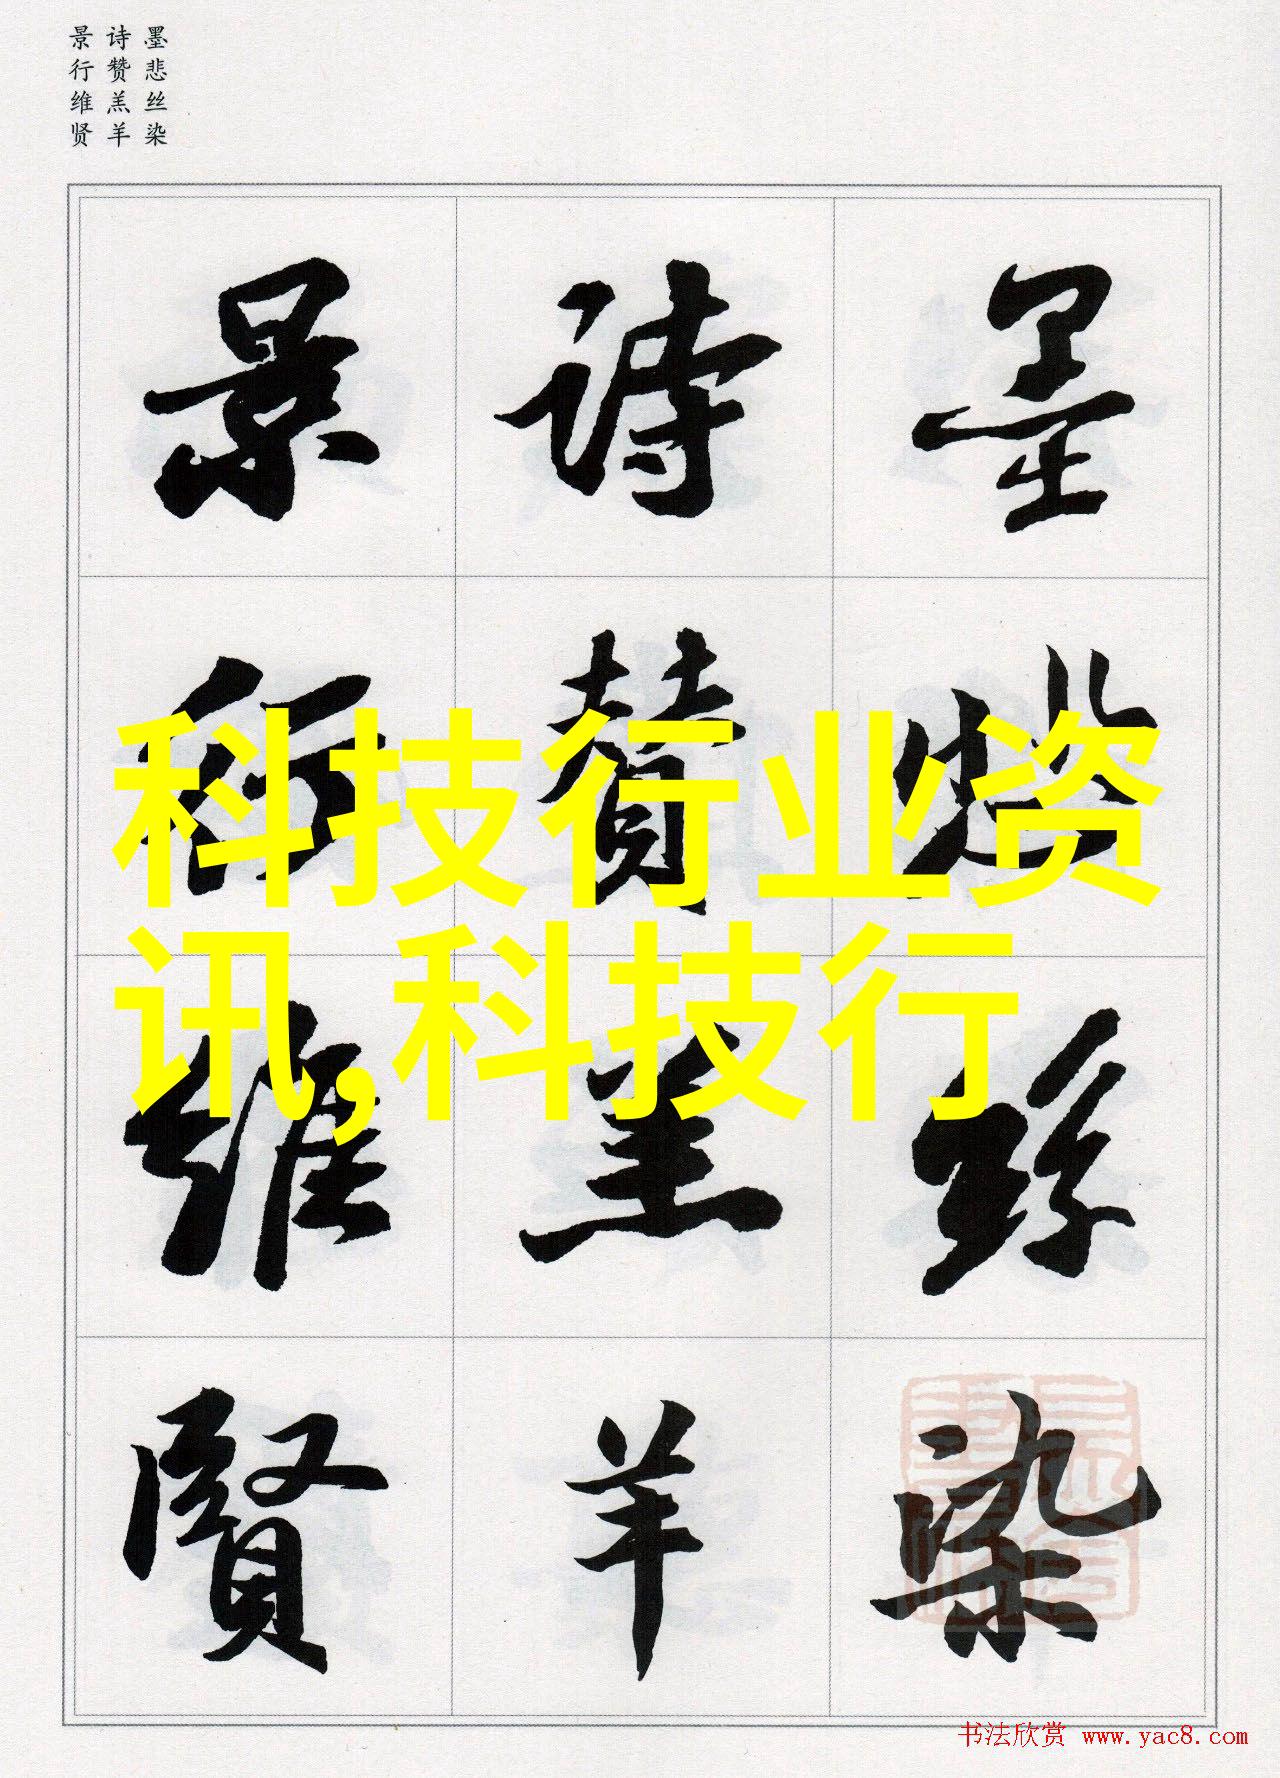 墨悲丝染
诗赞羔羊
景行维贤
墨悲絲染
詩贊羔羊
景行維賢
科技行业资
讯,科技行
书法欣赏 www.yac8.com